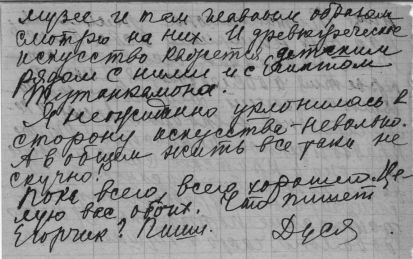 музее и там главным образом
смотрю на них. И древнегреческое
искусство кажется детским
рядом с ними и с Египтом
Тутанкамона.
Я неожиданно уклонилась в
сторону искусства - невольно.
А в общем жить все-таки не
скучно.
Пока всего, всего хорошего. Це-
лую вас обоих. Что пишет
Егорчик? Пиши. Дуся